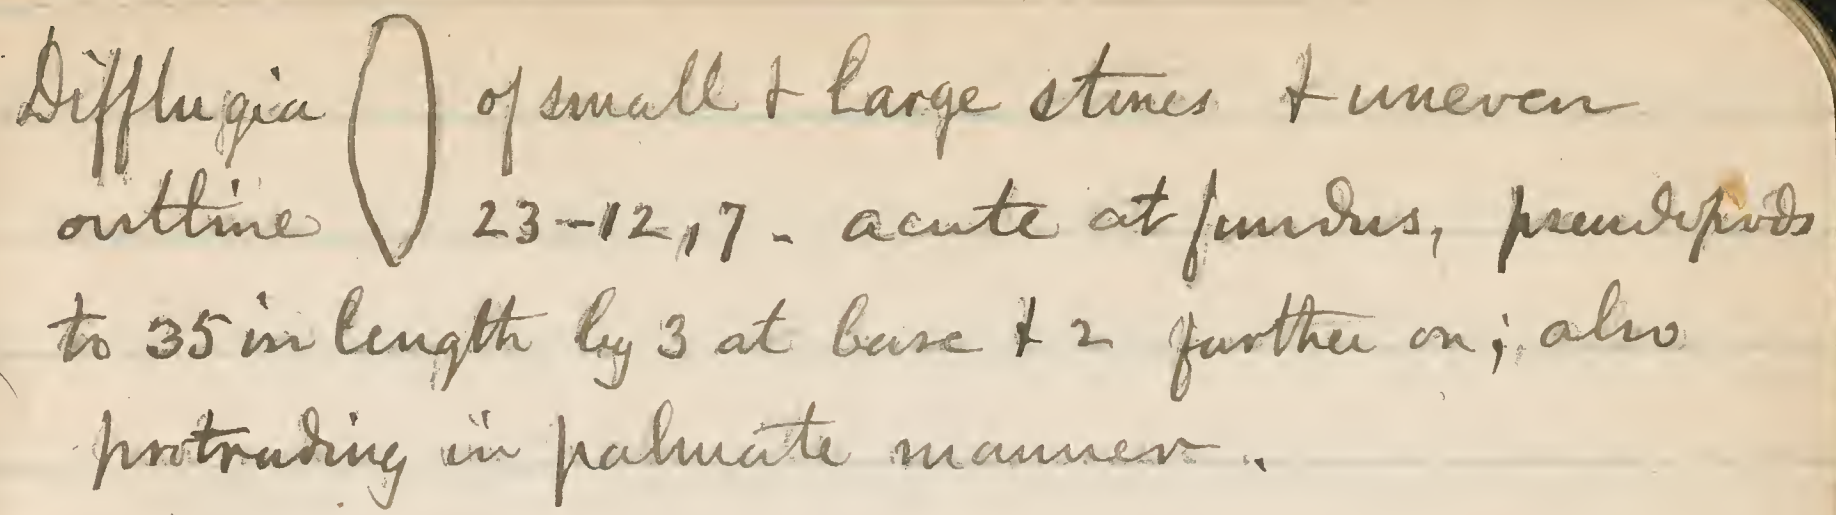 Difflugia of small & large stones & uneven
outline 23-12,7 - acute at fundus, pseudopods
to 35 in length by 3 at base & 2 further on; also
protruding in palmate manner.